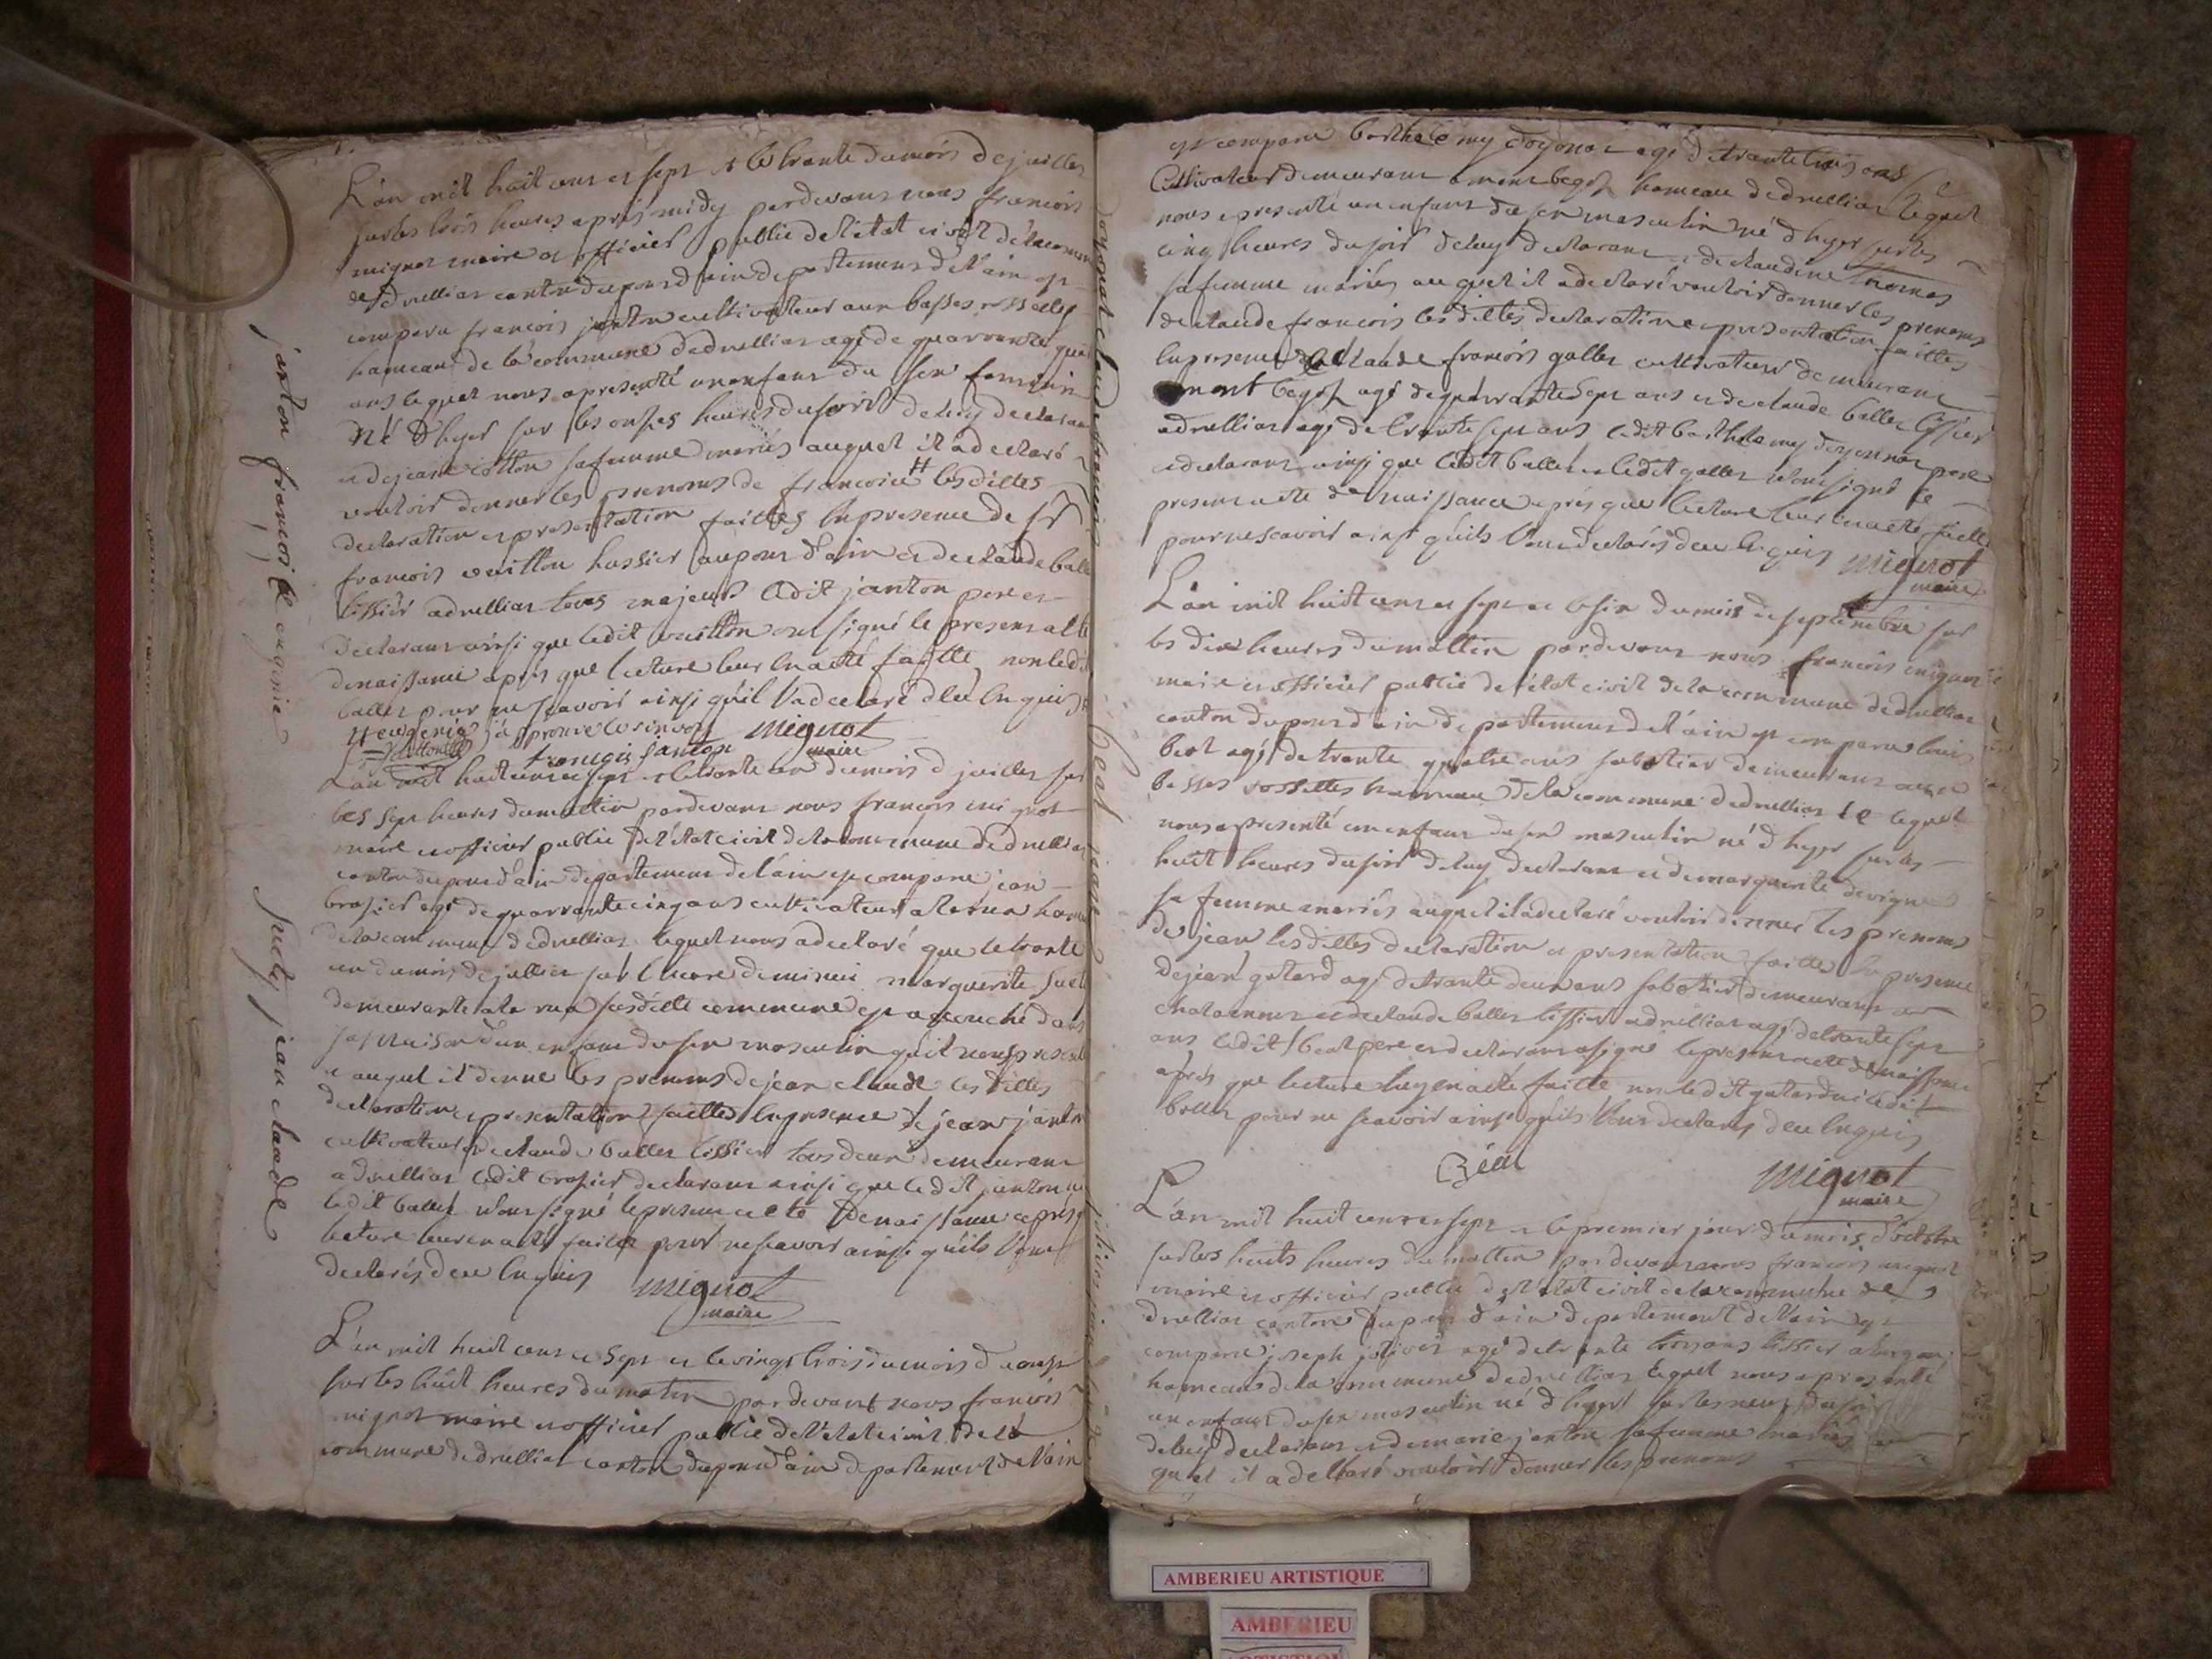 L'an mil huit cens et sept et le trante du mois de juillet
sur les trois heures apres midy pardevant nous francois
mignot maire et officier public de l'état civil de la commune
de druillias canton du pont d'ain departement de l'ain est
comparu francois janton cultivateur aux basses rossettes
hameau de la commune de druillias agé de quarrante
ans lequel nous a presenté un enfant du sex feminin
né d'hyer sur les onses heures du soir de luy declarant
et de jeanne cotton sa femme mariés auquel il a declaré
vouloir donner les prenoms de francoise # les dittes
declaration et presentation faittes en presence de sr
francois vuitton hussier au pont d'ain et de claude ballet
tissier a druillias tous majeurs ledit janton pere et
declarant ainsi que ledit vuitton ont signé le present acte
de naissance apres que lecture leur en a été faitte non ledit
ballet pour ne scavoir ainsi qu'il l'a declaré deu enquis
# eugenie j'approuve le renvoy mignot
francois janton maire
L'an mil huit cens et sept et le trante un du mois de juillet sur
les sept heures du mattin pardevant nous francois mignot
maire et officier public de l'état civil de la commune de druillias
canton du pont d'ain departement de l'ain est comparu jean
brasier agé de quarrante cinq ans cultivateur a la rua hameau
de la commune de druillias lequel nous a declaré que le trante
un du mois de juillet sur l'heure de minuit marguerite suely
demeurante a la rua susditte commune est accouché dans
sa maison d'un enfant du sex masculin qu'il nous presente
et auquel il donne les prenoms de jean claude les dittes
declaration et presentation faittes en presence de jean janton
cultivateur et de claude ballet tissier tous deux demeurant
a druillias ledit brasier declarant ainsi que ledit janton ni
ledit ballet n'ont signé le present acte de naissance apres
lecture leur en a été faitte pour ne scavoir ainsi qu'ils l'ont
declarés deu enquis mignot
maire
L'an mil huit cens et sept et le vingt trois du mois d'aoust
sur les huit heures du matin pardevant nous francois
mignot maire et officier public de l'état civil de la
commune de druillias canton du pont d'ain departement de l'ain
janton francoise eugenie
suely jean claude
est comparu barthelemy doyonnar agé de trante trois ans
cultivateur demeurant a mont begos hameau de druillias lequel
nous a presenté un enfant du sex masculin né d'hyer sur les
cinq heures du soir de luy declarant et de claudine thomas
sa femme mariés auquel il a declaré vouloir donner les prenoms
de claude francois les dittes declaration et presentation faittes
en presence de claude francois gallet cultivateur demeurant
a mont begos agé de quarrante sept ans et de claude ballet tissier
a druillias agé de trante sept ans ledit barthelemy doyonnar pere
et declarant ainsi que ledit ballet et ledit gallet n'ont signé le
present acte de naissance apres que lecture leur en a été faitte
pour ne scavoir ainsi qu'ils l'ont declarés deu enquis mignot
maire
L'an mil huit cens et sept et le six du mois de septembre sur
les dix heures du mattin pardevant nous francois mignot
maire et officier public de l'état civil de la commune de druillias
canton du pont d'ain departement de l'ain est comparu louis
beat agé de trante quatre ans sabotier demeurant aux
basses rossettes hameau de la commune de druillias lequel
nous a presenté un enfant du sex masculin né d'hyer sur les
huit heures du soir de luy declarant et de marguerite
sa femme mariés auquel il a declaré vouloir donner les prenoms
de jean les dittes declaration et presentation faittes en presence
de jean gotard agé de trante deux ans sabotier demeurant
et de claude ballet tissier a druillias agé de trante sept
ans ledit beat pere et declarant a signé le present acte de naissance
après que lecture luy en a été faitte non ledit gotard ni ledit
ballet pour ne scavoir ainsi qu'ils l'ont declarés deu enquis
Béat mignot
maire
L'an mil huit cens et sept et le premier jour du mois d'octobre
sur les huits heures du mattin pardevant nous francois mignot
maire et officier public de l'état civil de la commune de
druillias canton du pont d'ain departement de l'ain est
comparu joseph jolivet agé de trante trois ans tissier
hameau de la commune de druillias lequel nous a presenté
un enfant du sex masculin né d'hyer sur les neuf du soir
de luy declarant et de marie janton sa femme mariés au
quel il a declaré vouloir donner les prenoms
beat jean
AMBERIEU ARTISTIQUE
AMBERIEU